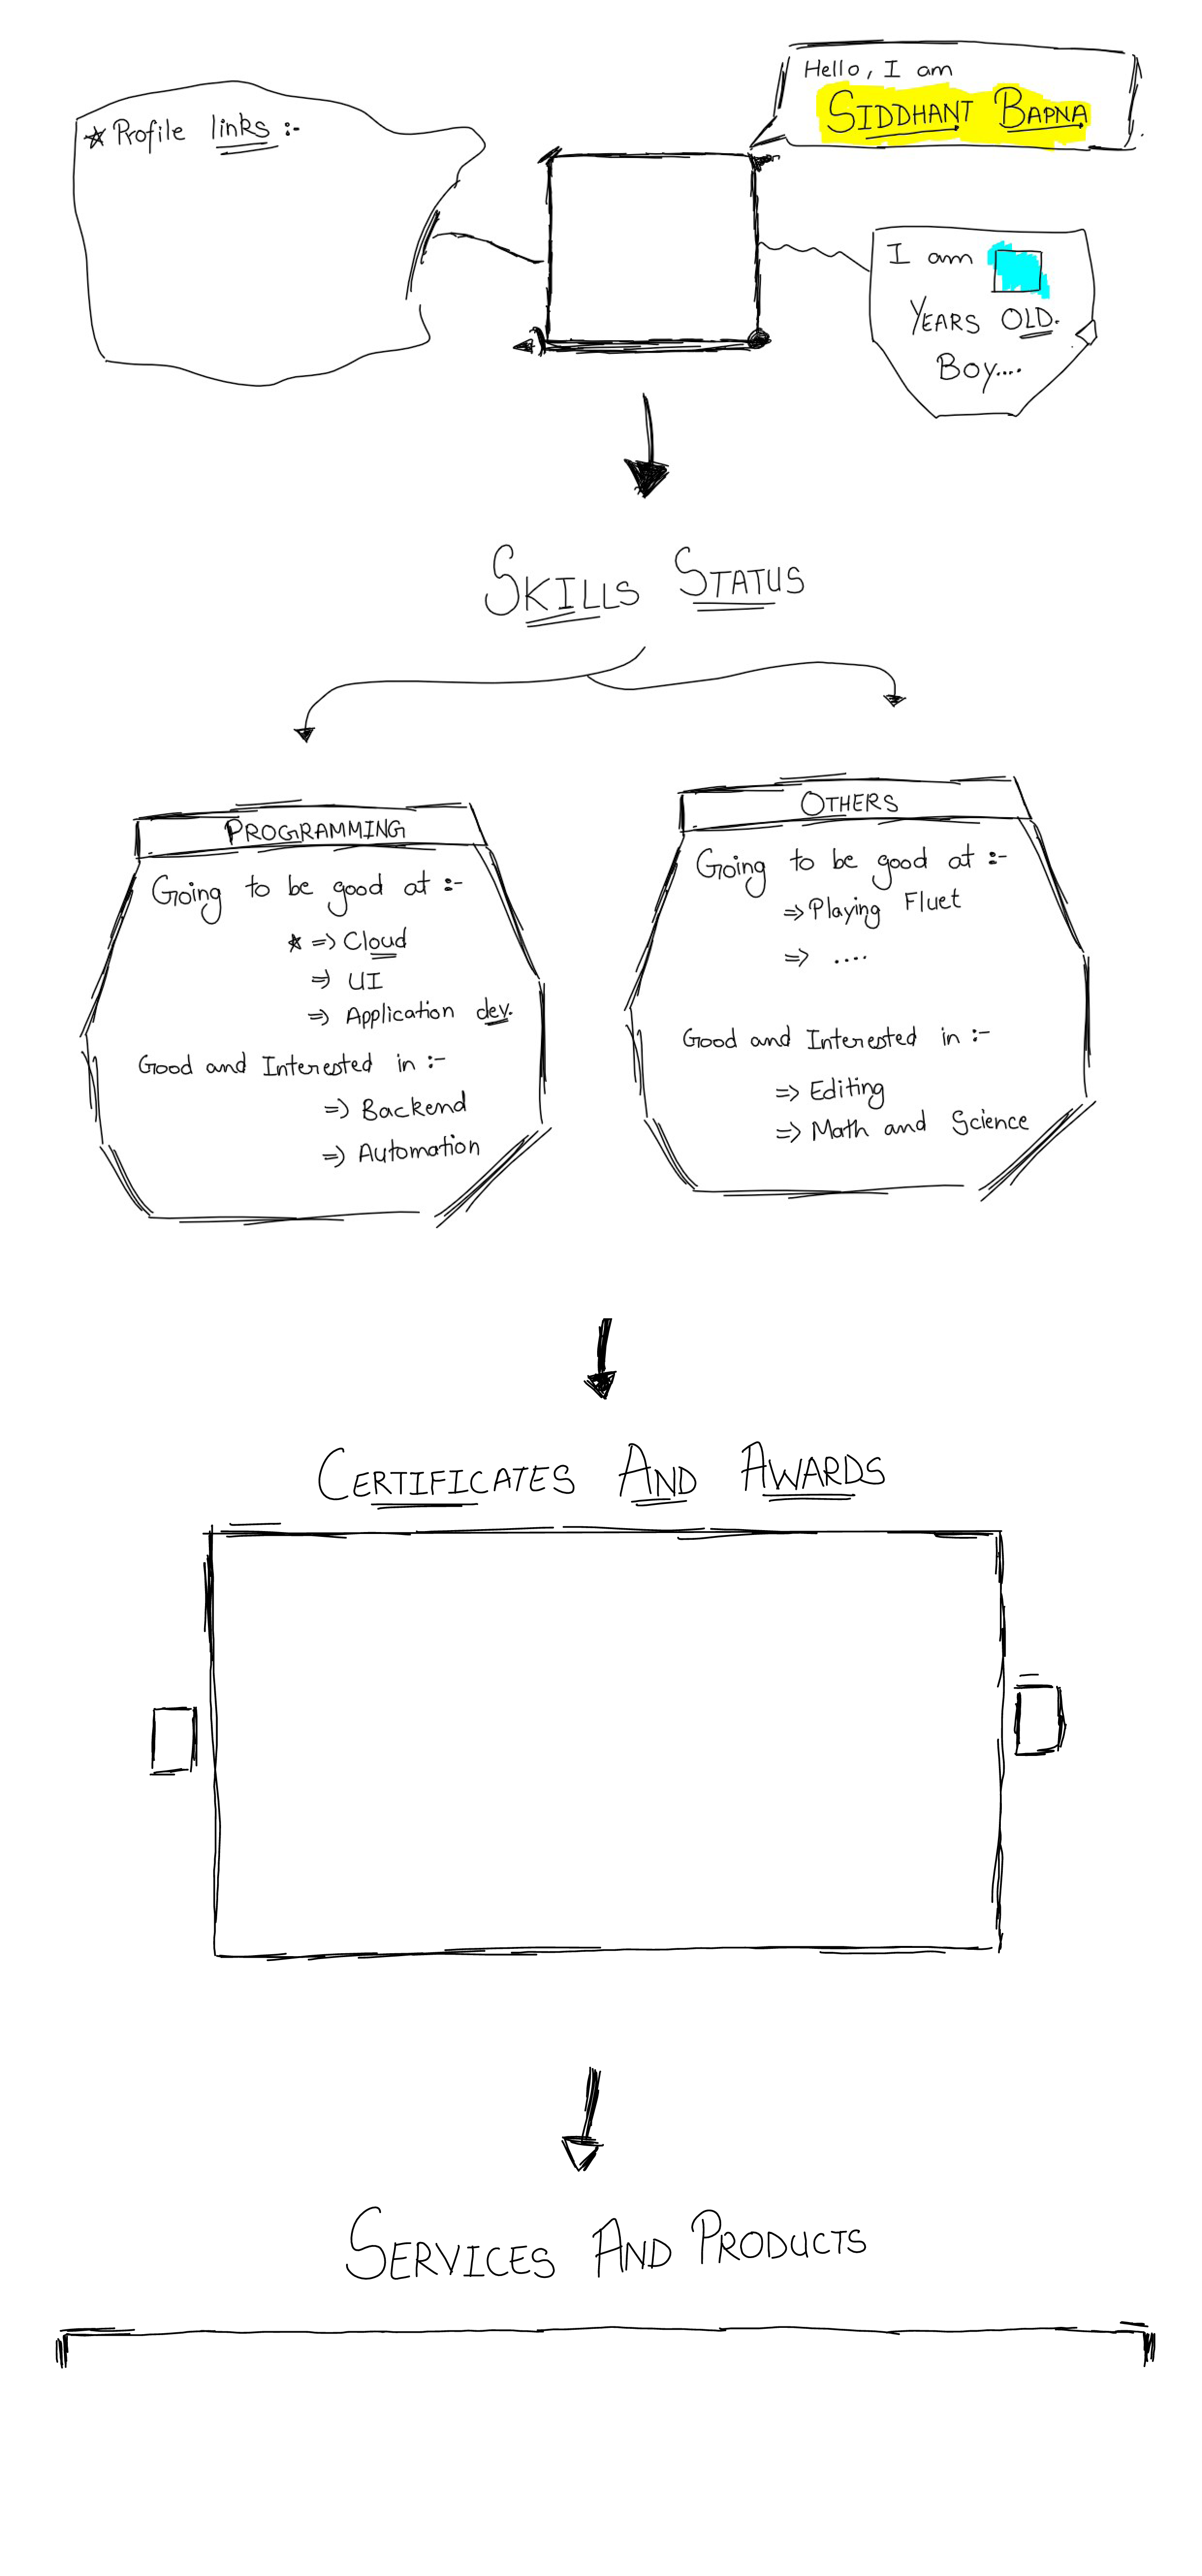 Hello, I am
SIDDHANT BAPNA
☆ Profile links :-
I am
YEARS OLD.
BOY....
SKILLS STATUS
PROGRAMMING
Going to be good at :-
☆ => Cloud
=> UI
=> Application dev.
Good and Interested in :-
=> Backend
=> Automation
OTHERS
Going to be good at :-
=> Playing Fluet
=> ....
Good and Interested in :-
=> Editing
=> Math and Science
CERTIFICATES AND AWARDS
SERVICES AND PRODUCTS